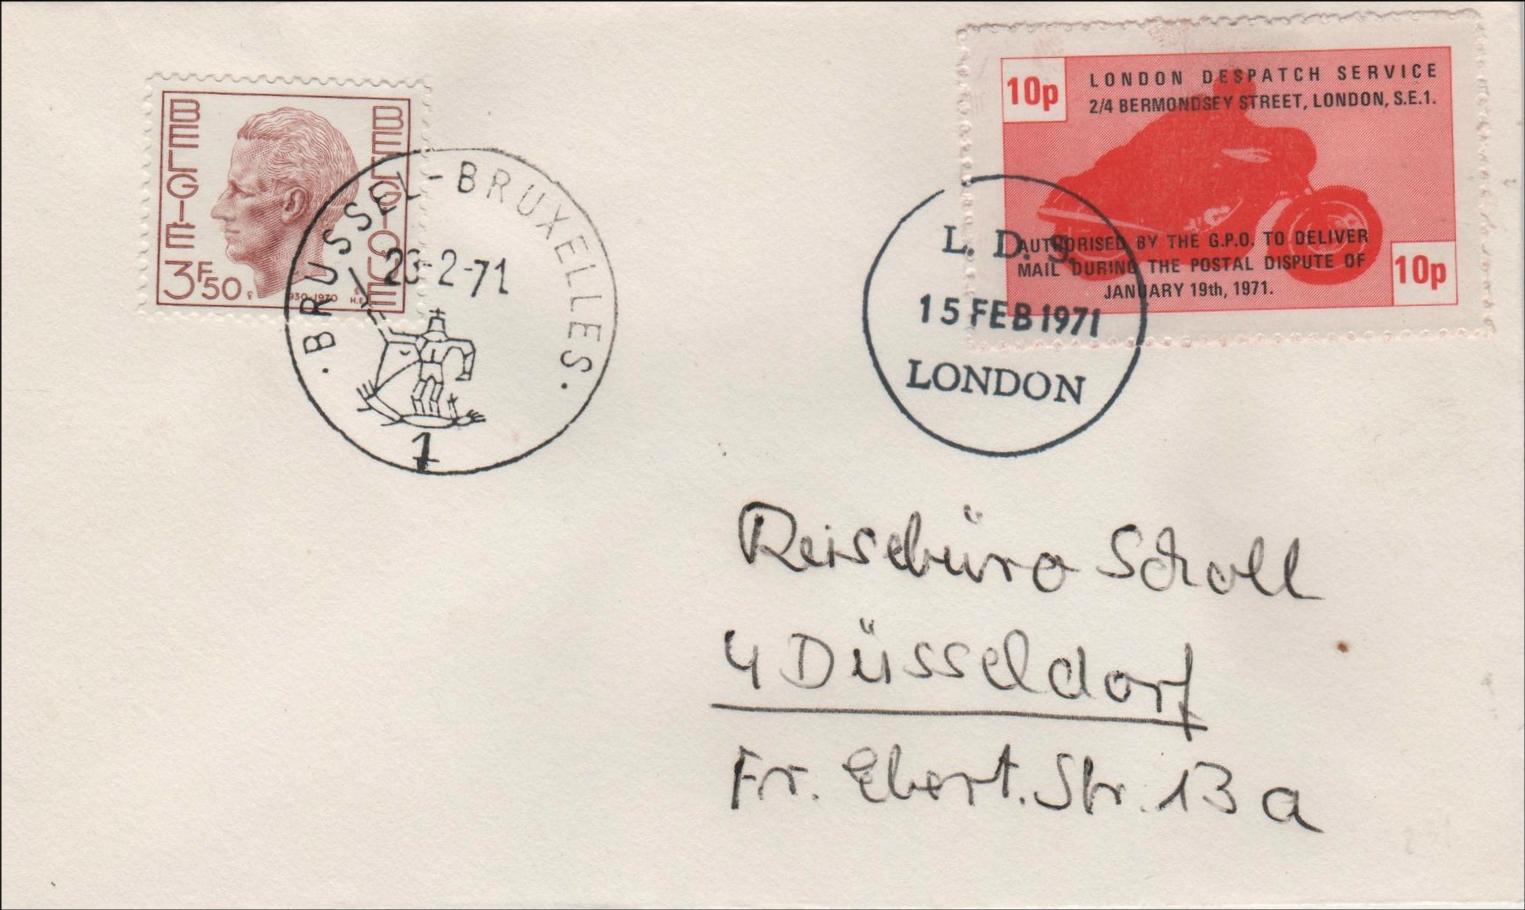 BELGIE
BELGIQUE
3F50
1930-1970
BRUSSEL-BRUXELLES
23-2-71
1
10p
LONDON DESPATCH SERVICE
2/4 BERMONDSEY STREET, LONDON, S.E.1.
AUTHORISED BY THE G.P.O. TO DELIVER
MAIL DURING THE POSTAL DISPUTE OF
JANUARY 19th, 1971.
10p
L. D. S.
15 FEB 1971
LONDON
Reisebüro Scholl
4 Düsseldorf
Fr. Ebert. Str. 13 a